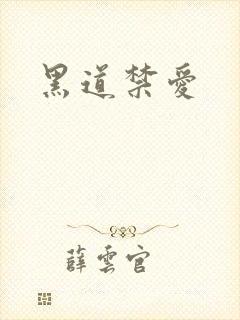 黑道禁愛
薛雲官